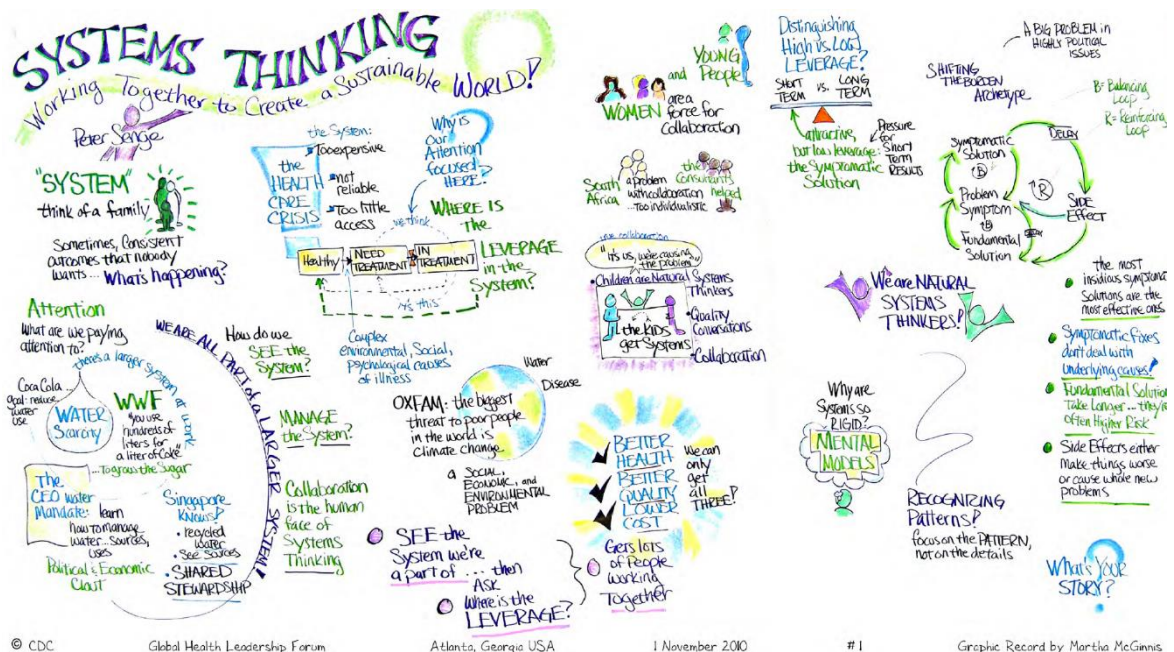 SYSTEMS THINKING
Working Together to Create a Sustainable WORLD!
Peter Senge
"SYSTEM"
think of a family
Sometimes, Consistent
outcomes that nobody
wants... What's happening?
Attention
What are we paying
attention to?
there's a larger system at work
Coca Cola
goal: reduce
water
use
WATER
Scarcity
WWF
"you use
hundreds of
liters for
a liter of Coke"
...to grow the Sugar
The
CEO Water
Mandate:
learn
how to manage
water... sources,
uses
Political & Economic
Clout
Singapore
Knows!
• recycled
water
- See Sources
• SHARED
STEWARDSHIP
WE ARE ALL PART OF A LARGER SYSTEM!
the System:
the
HEALTH
CARE
CRISIS
Too expensive
not
reliable
Too little
access
Why is
our
Attention
focused
HERE?
we think
WHERE IS
the
LEVERAGE
in the
System?
Healthy
NEED
TREATMENT
IN
TREATMENT
it's this
Complex
environmental, Social,
psychological causes
of illness
How do we
SEE the
System?
MANAGE
the System?
Collaboration
is the human
face of
Systems
Thinking
Water
Disease
OXFAM: the biggest
threat to poor people
in the world is
climate change
a SOCIAL,
ECONOMIC, and
ENVIRONMENTAL
PROBLEM
SEE the
System we're
a part of ... then
Ask
Where is the
LEVERAGE?
YOUNG
and People
WOMEN
are a
force for
Collaboration
South
Africa
a problem
with collaboration
... too individualistic
the
Consultants
helped
true collaboration
"It's us, we're causing
the problem"
• Children are Natural Systems
Thinkers
the KIDS
get Systems
• Quality
Conversations
• Collaboration
BETTER
HEALTH
BETTER
QUALITY
LOWER
COST
We can
only
get
all
THREE!
Gets lots
of People
working
Together
Distinguishing
High vs. Low
LEVERAGE?
SHORT
TERM
vs.
LONG
TERM
attractive,
but low leverage:
the Symptomatic
Solution
Pressure
for
Short
Term
RESULTS
We are NATURAL
SYSTEMS
THINKERS!
Why are
Systems so
RIGID?
MENTAL
MODELS
RECOGNIZING
Patterns!
focus on the PATTERN,
not on the details
A BIG PROBLEM IN
HIGHLY POLITICAL
ISSUES
SHIFTING
THE BURDEN
Archetype
B= Balancing
Loop
R= Reinforcing
Loop
DELAY
Symptomatic
Solution
B
R
Problem
Symptom
SIDE
EFFECT
B
Fundamental
Solution
The most
insidious symptomatic
Solutions are the
most effective ones
Symptomatic fixes
don't deal with
underlying causes!
Fundamental Solutions
Take Longer... they're
often Higher Risk
Side Effects either
make things worse
or cause whole new
problems
What's YOUR
STORY?
© CDC
Global Health Leadership Forum
Atlanta, Georgia USA
1 November 2010
#1
Graphic Record by Martha McGinnis